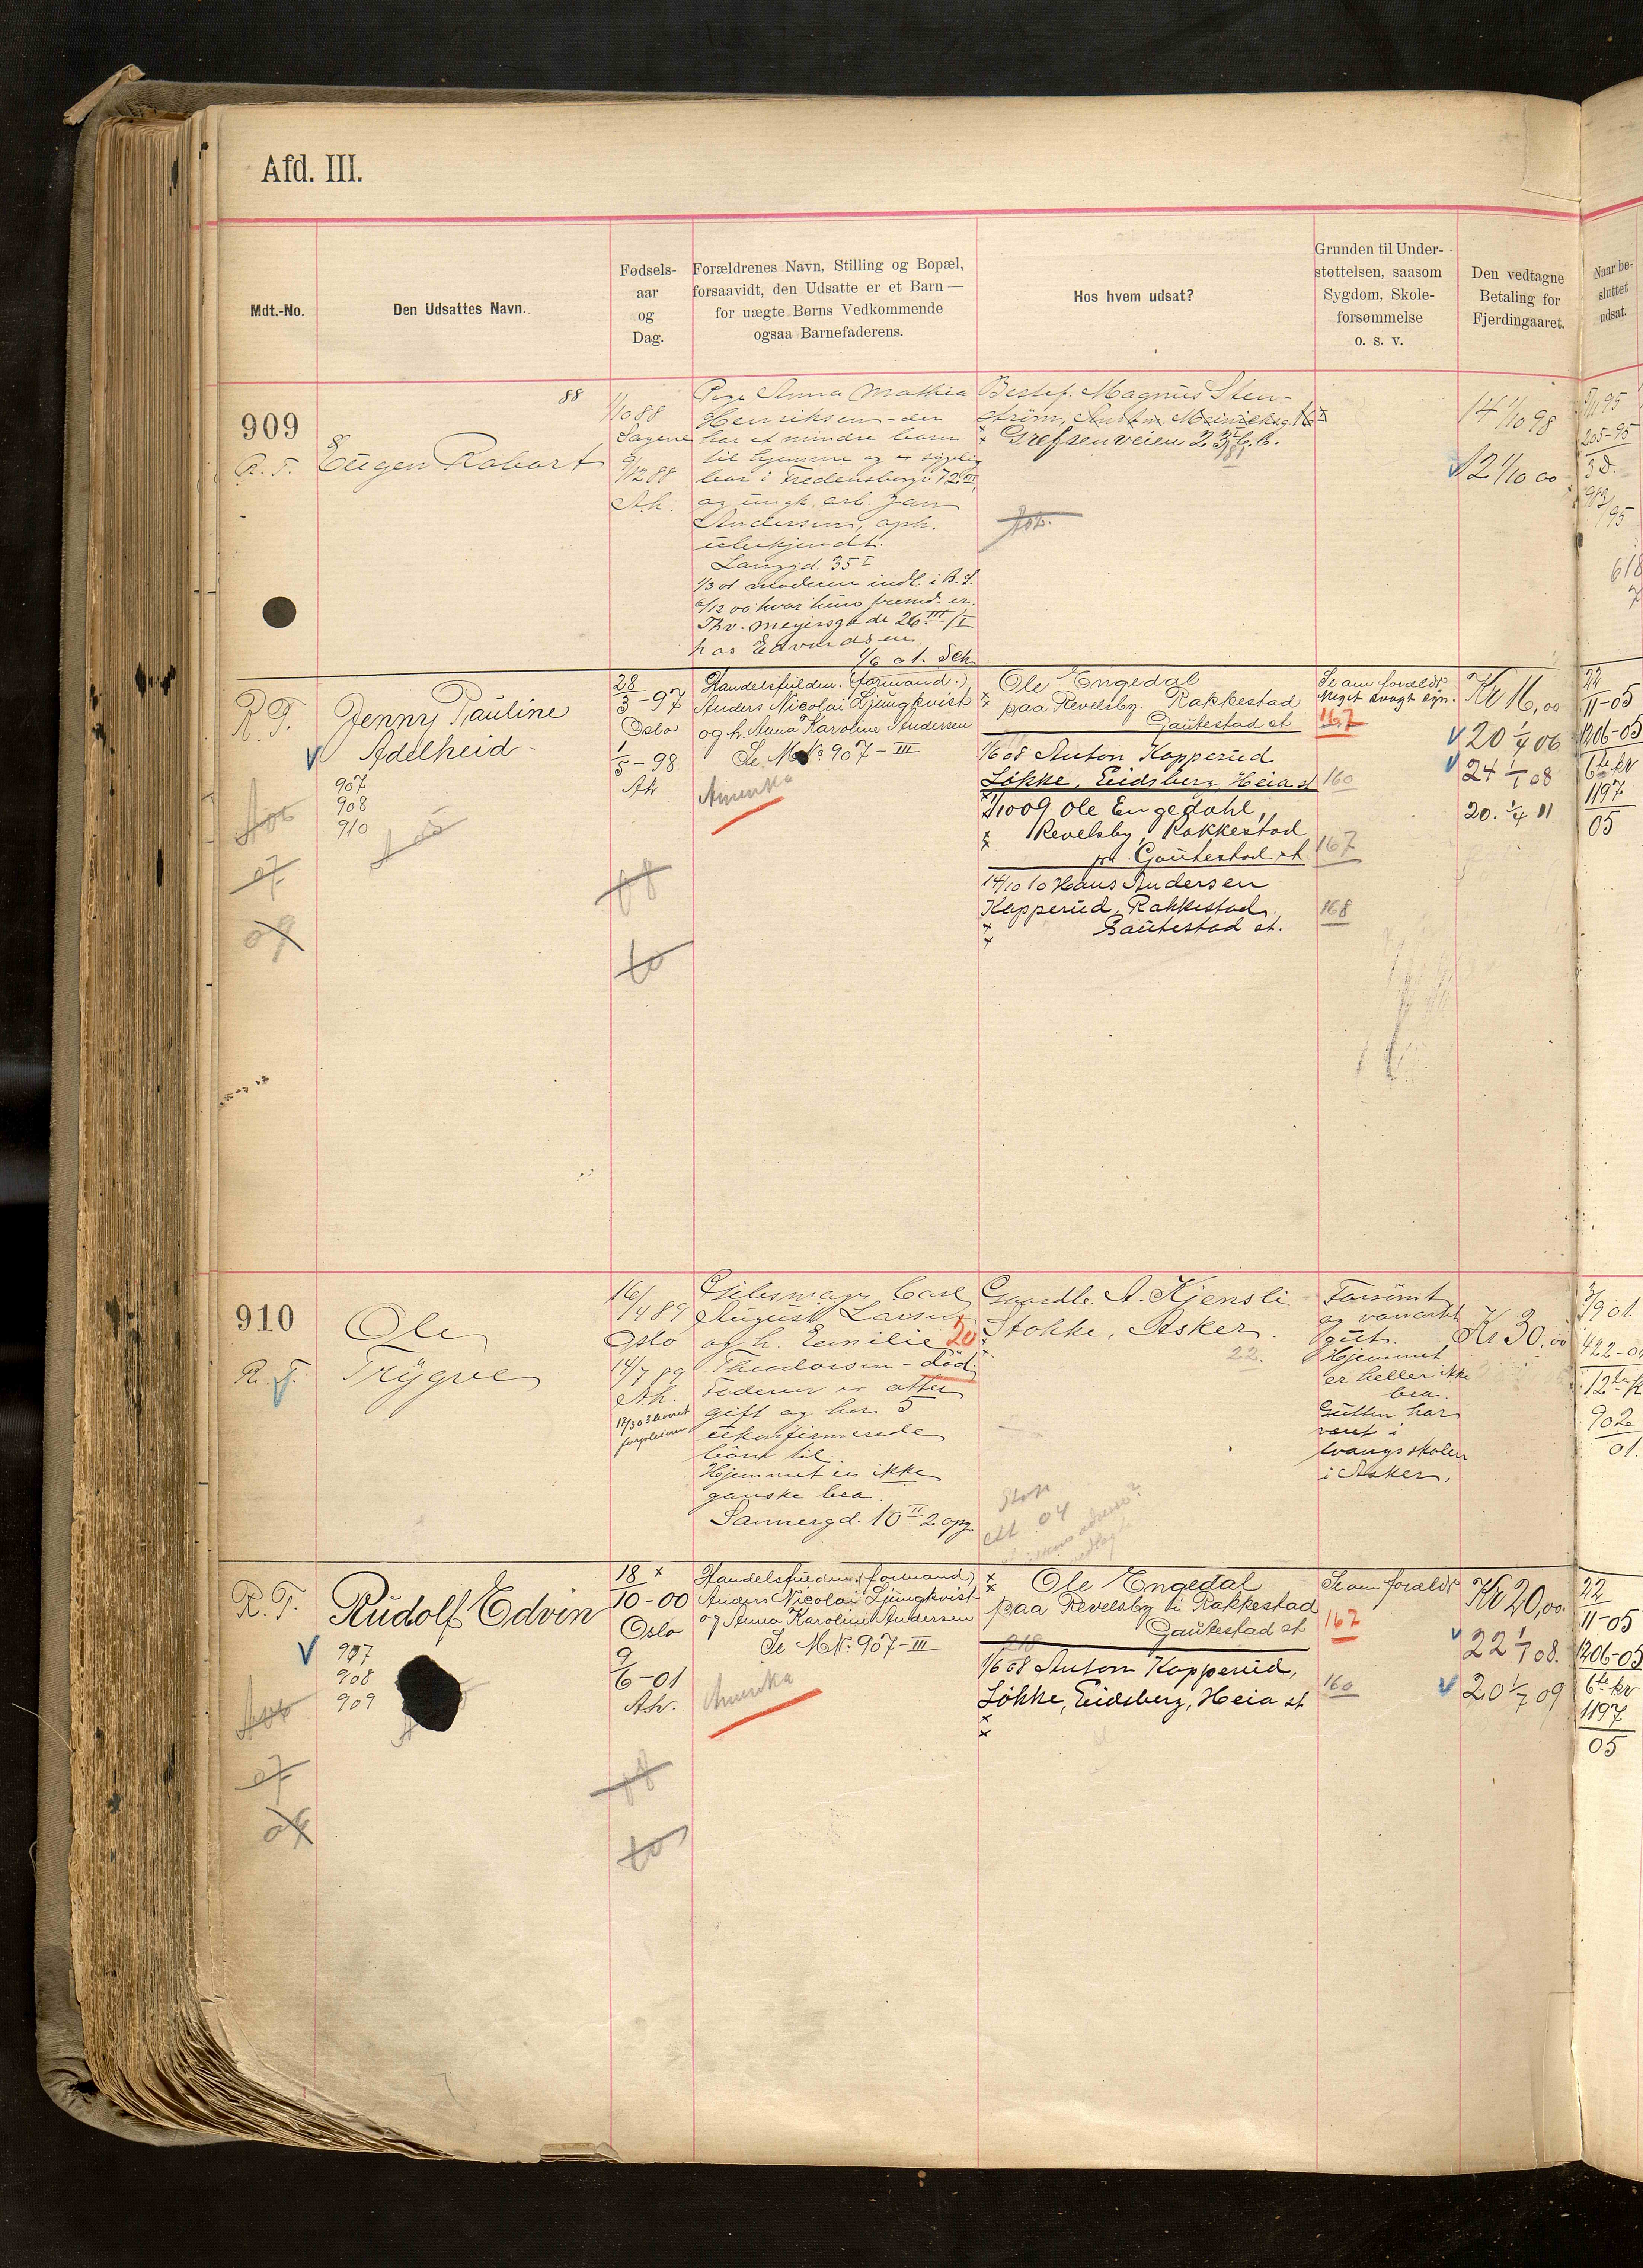 Afd. III.
Mdt.-No.
Den Udsattes Navn.
Fødsels-
aar
og
Dag.
Forældrenes Navn, Stilling og Bopæl,
forsaavidt, den Udsatte er et Barn —
for uægte Børns Vedkommende
ogsaa Barnefaderens.
Hos hvem udsat?
Grunden til Under-
støttelsen, saasom
Sygdom, Skole-
forsømmelse
o. s. v.
Den vedtagne
Betaling for
Fjerdingaaret.
Naar be-
sluttet
udsat.
909
R. T.
Eugen Robart
88
1/10 88
Sagene
9/12 88
Ak.
Pige Anna Mathea
Henriksen der
har et mindre barn
til hjemme og er sygelig
bor i Fredensborgv 72 III,
og ungk. arb. Jan
Andersen, oph.
ubekjendt.
Langgd. 35 I
1/3 01 moderen indl. i B. S.
6/12 00 hvor hun fremd. er.
Thv. Meyersgade 26 III/I
hos Edvardsen
1/6 01. Sch
Bestef. Magnus Sten-
strøm,
Grefsenveien 2
14 1/10 98
12 1/10 00
5/11 95
205-95
3 d.
95
618
R. T.
Jenny Pauline
Adelheid
907
908
910
07
09
28
3-97
Oslo
1
5-98
Ak
10
Handelsfuldm. (formand.)
Anders Nicolai Ljungkvist
og h. Anna Karoline Andersen
Se M. No. 907-III
Amerika
Ole Engedal
paa Revelsby. Rakkestad
Gautestad st
1/6 08 Anton Kopperud
Løkke, Eidsberg Heia st
1/10 09 Ole Engedahl,
Revelsby, Rakkestad
pr. Gautestad st
14/10 10 Hans Andersen
Kopperud, Rakkestad.
Gautestad st.
Se am foralds
Meget svagt syn.
167
160
167
168
Kr 16,00
20 1/4 06
24 1/7 08
20. 1/4 11
22
11-05
1206-05
6te kr
1197
05
910
R. T.
Ole
Trygve
16/
/4 89
Oslo
14/7 89
Ak.
August Larsen
og h. Emilie 20
Theodorsen - død.
Faderen er atter
gift og har 5
ukonfirmerede
børn til.
Hjemmet er ikke
ganske bra.
Sannergd. 10 II 2 opg.
Gaardbr. A. Kjensli
Stokke, Asker.
22.
04
Forsømt
og vanartet
gut.
Hjemmet
er heller ikke
bra.
Gutten har
været i
tvangsskolen
i Asker.
Kr. 30,00
3/9 01.
422-01
12te
902
01.
R. T.
Rudolf Edvin
907
908
909
07
09
18 x
10-00
Oslo
9
6-01
Ak.
10
Handelsfuldm. (formand)
Anders Nicolai Ljungkvist
og Anna Karoline Andersen
Se M No. 907-III
Amerika
Ole Engedal
paa Revelsby i Rakkestad
Gautestad st
1/6 08 Anton Kopperud,
Løkke, Eidsberg, Heia st
Se am foralds
167
160
Kr 20,00.
22 1/7 08.
20 1/7 09
22
11-05
1206-05
6te kr
1197
05